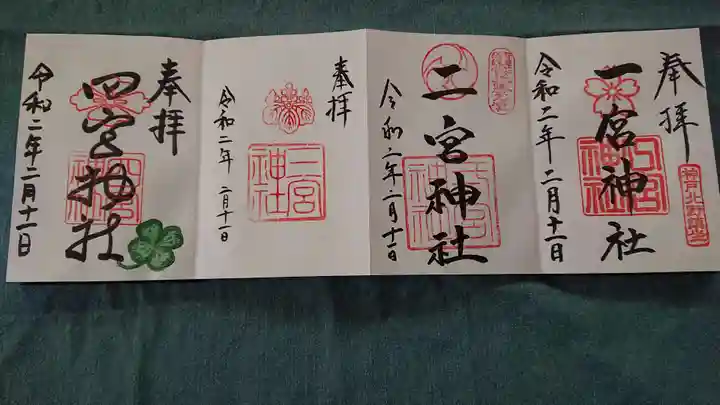 奉拝
一宮神社
一宮神社
令和二年二月十一日
二宮神社
令和二年二月十一日
奉拝
三宮神社
令和二年 二月十一日
奉拝
四宮神社
令和二年二月十一日